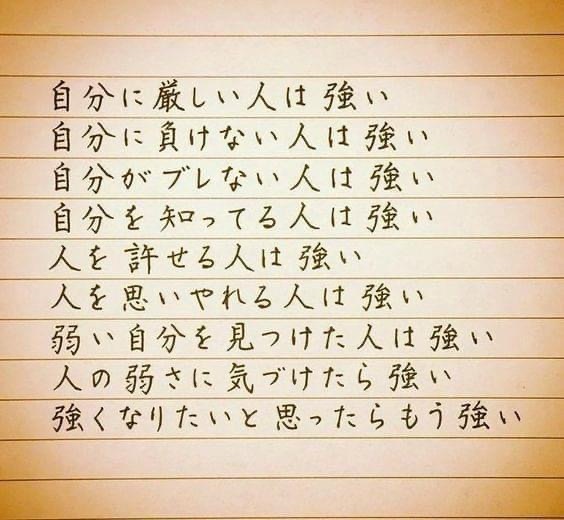 自分に厳しい人は強い
自分に負けない人は強い
自分がブレない人は強い
自分を知ってる人は強い
人を許せる人は強い
人を思いやれる人は強い
弱い自分を見つけた人は強い
人の弱さに気づけたら強い
強くなりたいと思ったらもう強い